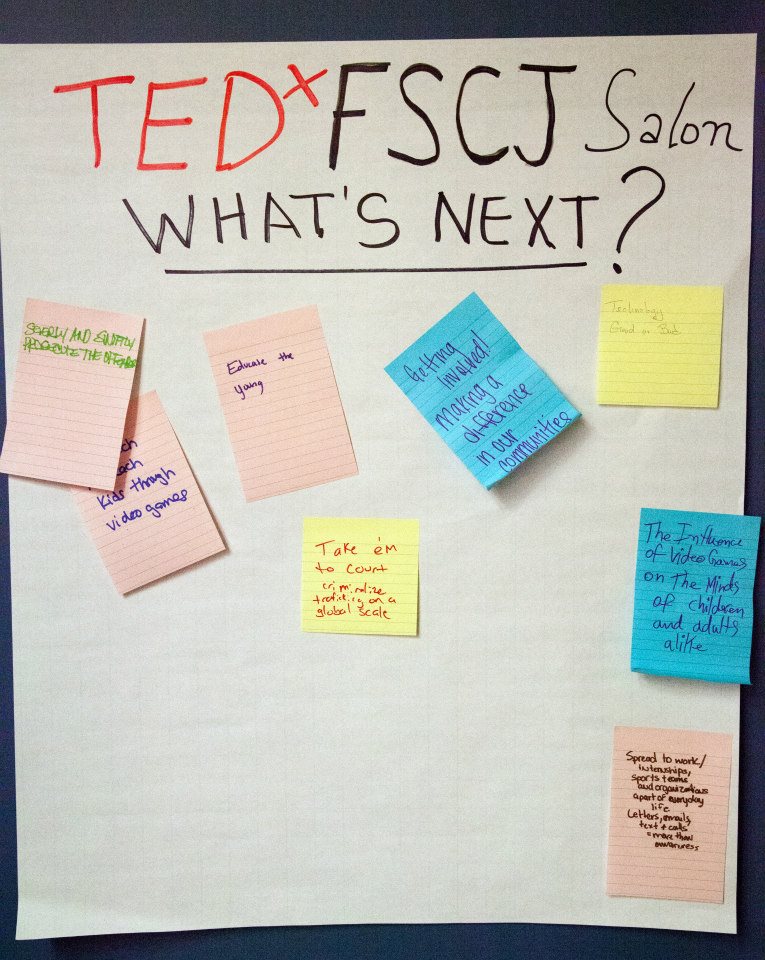 TEDxFSCJ Salon
WHAT'S NEXT?
SEVERLY AND SWIFTLY
PROSECUTE THE
Kids through
video games
Educate the
young
Getting
involved!
Making a
difference
in our
communities
Technology
Good or Bad
Take 'em
to court
criminalize
on a
global scale
The Influence
of Video Games
on The Minds
of children
and adults
alike
Spread to work/
internships,
sports teams
and organizations
a part of everyday
life
Letters, emails,
text + calls
= more than
awareness